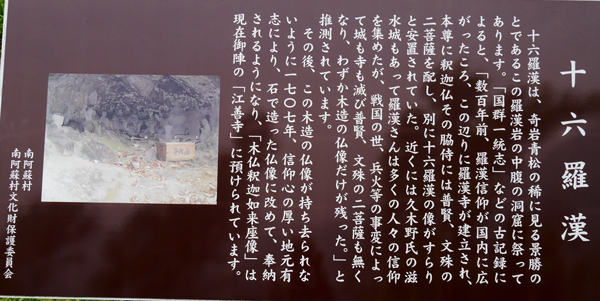 十六羅漢
十六羅漢は、奇岩青松の稀に見る景勝の
とであるこの羅漢岩の中腹の洞窟に祭って
あります。「国群一統志」などの古記録に
よると、「数百年前、羅漢信仰が国内に広
がったころ、この辺りに羅漢寺が建立され、
本尊に釈迦仏その脇侍には普賢、文殊の
二菩薩を配し、別に十六羅漢の像がずらり
と安置されていた。近くには久木野氏の滋
水城もあって羅漢さんは多くの人々の信仰
を集めたが、戦国の世、兵火等の事変によっ
て城も寺も滅び普賢、文殊の二菩薩も無く
なり、わずか木造の仏像だけが残った。」と
推測されています。
その後、この木造の仏像が持ち去られな
いように一七〇七年、信仰心の厚い地元有
志により、石で造った仏像に改めて、奉納
されるようになり、「木仏釈迦如来座像」は
現在御陣の「江善寺」に預けられています。
南阿蘇村
南阿蘇村文化財保護委員会